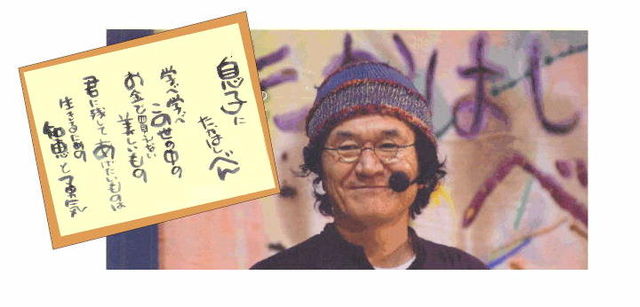 息子に
たかはしべん
学べ学べ
この世の中の
お金で買えない
美しいもの
君に残して あげたいものは
生きるための
知恵と勇気
かはし
べ